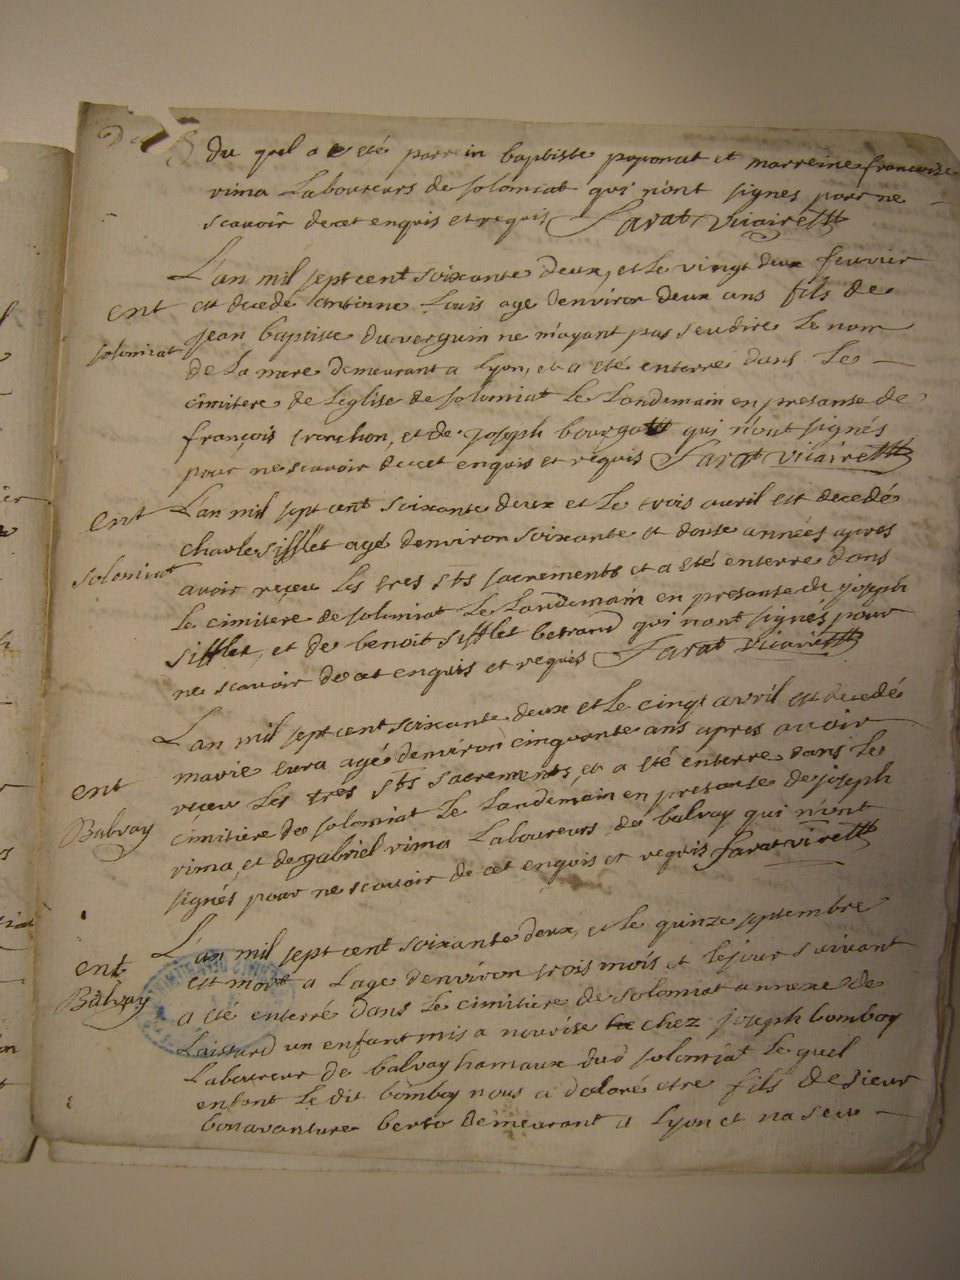 du quel a été parrein baptiste poponat et marreine francoise
vima Laboureurs de solomiat qui n'ont signes pour ne
scavoir de cet enquis et requis Sarat viicaire
L'an mil sept cent soixante deux, et Le vingt deux feuvrier
ent
est decede antoinne Louis age denviron deux ans fils de
solomiat
jean baptiste duverguin ne m'ayant pas seu dire Le nom
de La mere demeurant a Lyon, et a été enterré dans Le
cimitere de Leglise de solomiat Le Landemain en presanse de
françois tronchon, et de joseph bourga qui n'ont signés
pour ne scavoir de cet enquis et requis Sarat viicaire
ent
L'an mil sept cent soixante deux et Le trois avril est decedé
charle sifflet agé denviron soixante et douse années apres
solomiat
avoir reçeu Les tres sts sacrements et a été enterre dans
Le cimitere de solomiat Le Landemain en presanse de joseph
sifflet, et de benoit sifflet betrand qui n'ont signés pour
ne scavoir de cet enquis et requis Sarat vicaire
L'an mil sept cent soixante deux et Le cingt avril est decedé
marie Eura agé denviron cinquante ans apres avoir
ent
reçeu Les tres sts sacrements et a été enterre dans Le
Balvay
cimitiere de solomiat Le Landemain en presanse de joseph
vima, et de gabriel vima Laboureurs de balvay qui n'ont
signés pour ne scavoir de cet enquis et requis Sarat vire
L'an mil sept cent soixante deux, et le quinze septembre
ent
est mort a L'age denviron trois mois et le jour suivant
Balvay
a été enterré dans Le cimitiere de solomiat annexe de
Laissard un enfant mis a nourise chez joseph bomboy
Laboureur de balvay hamaux dud solomiat Le quel
enfant Le dit bomboy nous a déclaré etre fils de sieur
bonavanture berto demeurant a Lyon et na seu